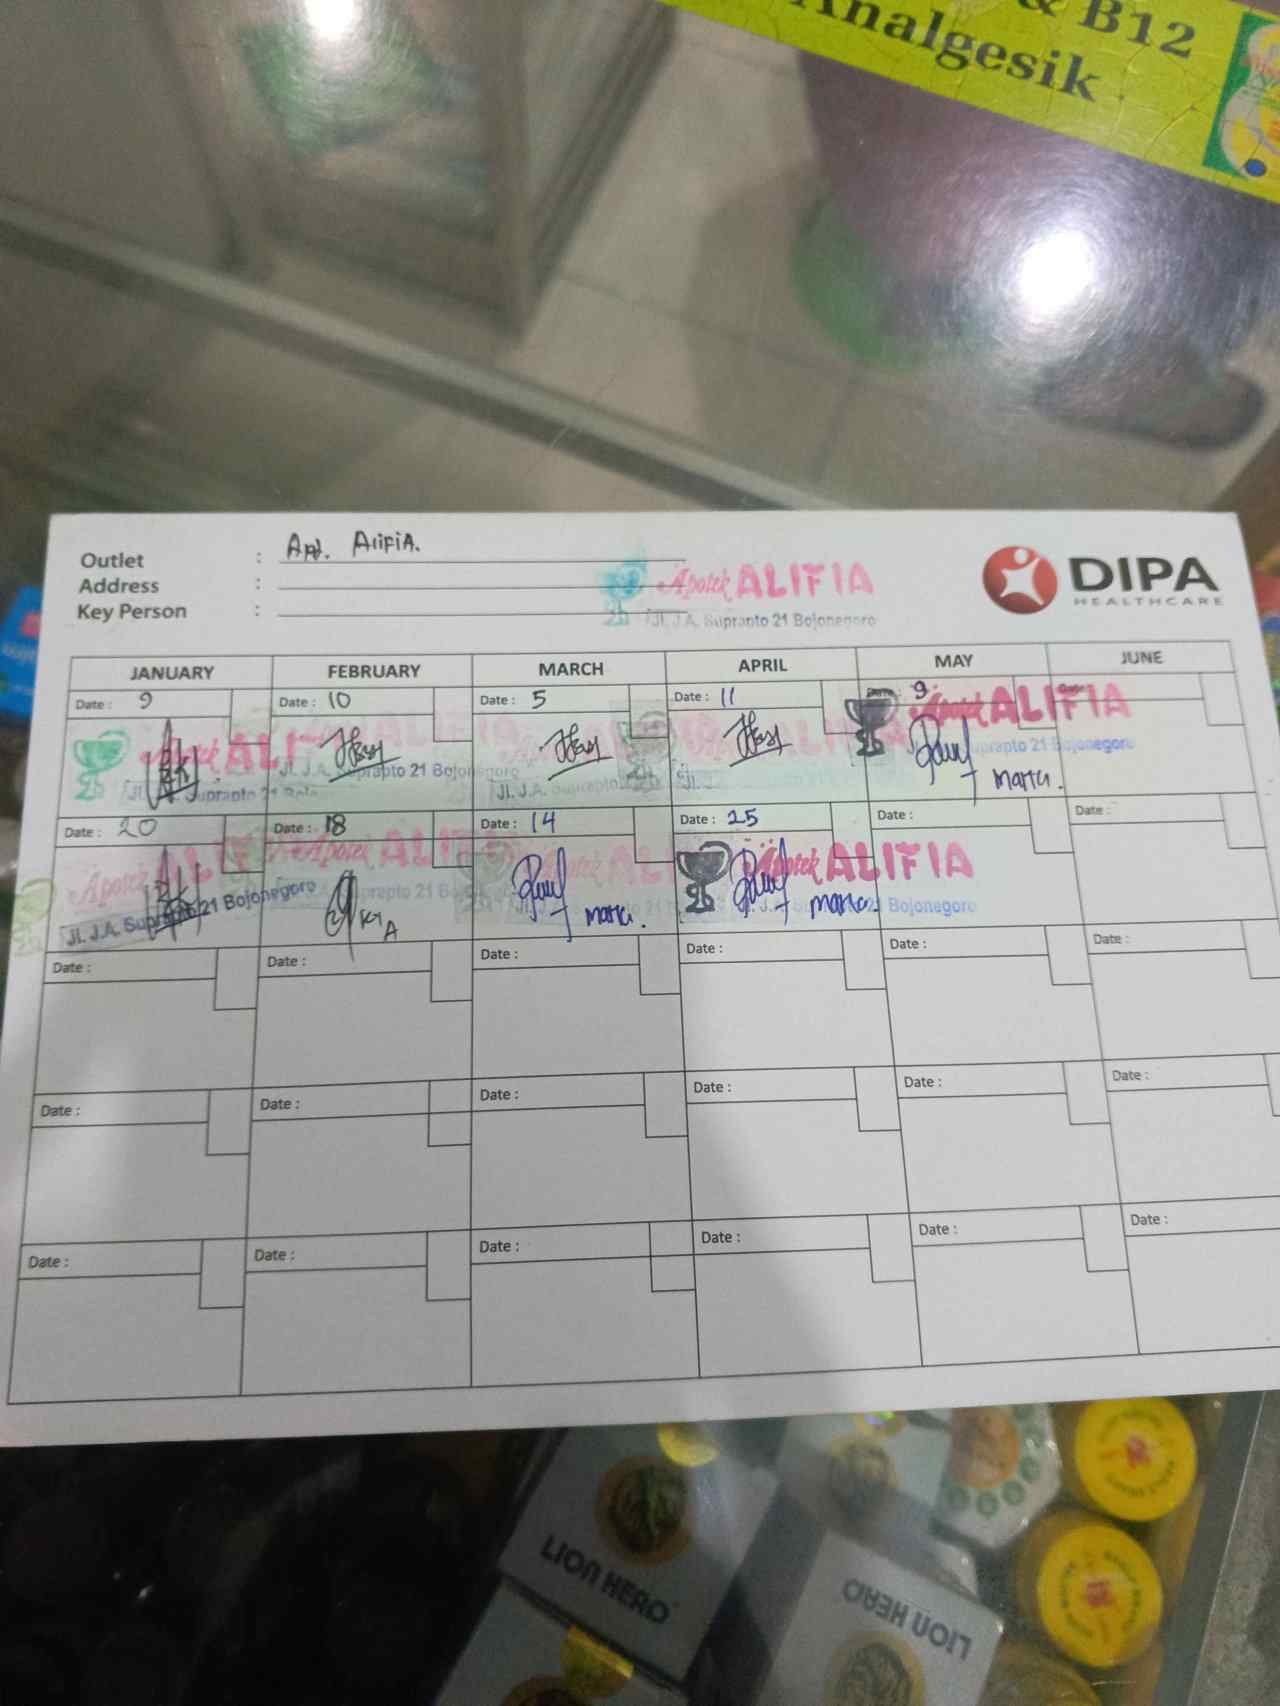 & B12
Analgesik
Outlet : Apt. Alifia.
Address :
Key Person :
Apotek ALIFIA
Jl. J.A. Suprapto 21 Bojonegoro
DIPA
HEALTHCARE
JANUARY FEBRUARY MARCH APRIL MAY JUNE
Date : 9 Date : 10 Date : 5 Date : 11 Date : 9 Date :
Apotek ALIFIA
Jl. J.A. Suprapto 21 Bojonegoro
Marta.
Date : 20 Date : 18 Date : 14 Date : 25 Date : Date :
Apotek ALIFIA
Jl. J.A. Suprapto 21 Bojonegoro
Marta. Marta.
Date : Date : Date : Date : Date : Date :
Date : Date : Date : Date : Date : Date :
Date : Date : Date : Date : Date : Date :
LION HERO
LION HERO